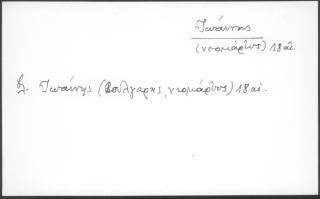 Ἰωάννης
(νεομάρτυς) 18 αἰ.
Σ. Ἰωάννης (Βούλγαρης, νεομάρτυς) 18 αἰ.